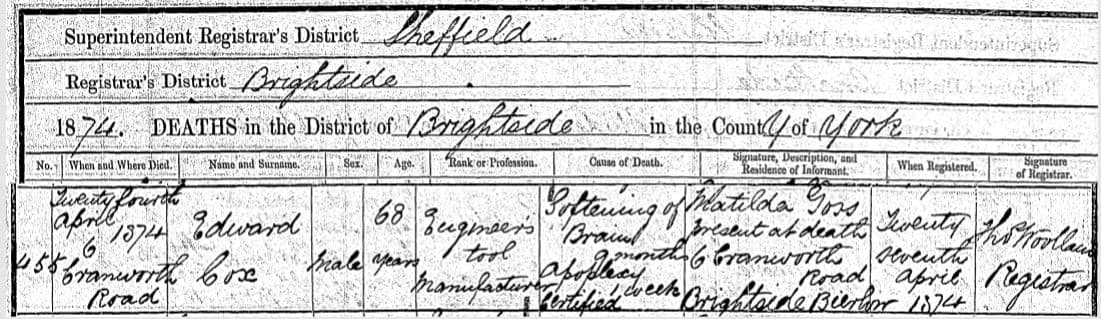 Superintendent Registrar's District Sheffield
Registrar's District Brightside
1874. DEATHS in the District of Brightside in the County of York
No. When and Where Died. Name and Surname. Sex. Age. Rank or Profession. Cause of Death. Signature, Description, and Residence of Informant. When Registered. Signature of Registrar.
455
Twenty fourth
April 1874
6
Cranworth
Road
Edward
Cox
Male
68
years
Engineer's
tool
Manufacturer
Softening of
Brain
9 months
Apoplexy
1 week
Certified
Matilda Goss
Present at death
6 Cranworth
Road
Brightside Bierlow
Twenty
seventh
April
1874
Thos
Registrar